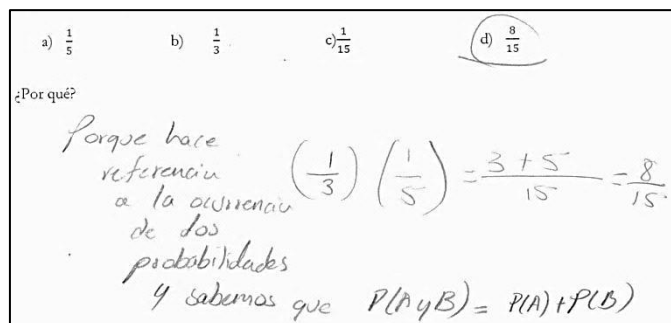 a) 1/5 b) 1/3 c) 1/15 d) 8/15
¿Por qué?
Porque hace
referencia
a la ocurrencia
de dos
probabilidades
y sabemos que P(A y B) = P(A) + P(B)
(1/3) (1/5) = 3 + 5 / 15 = 8/15